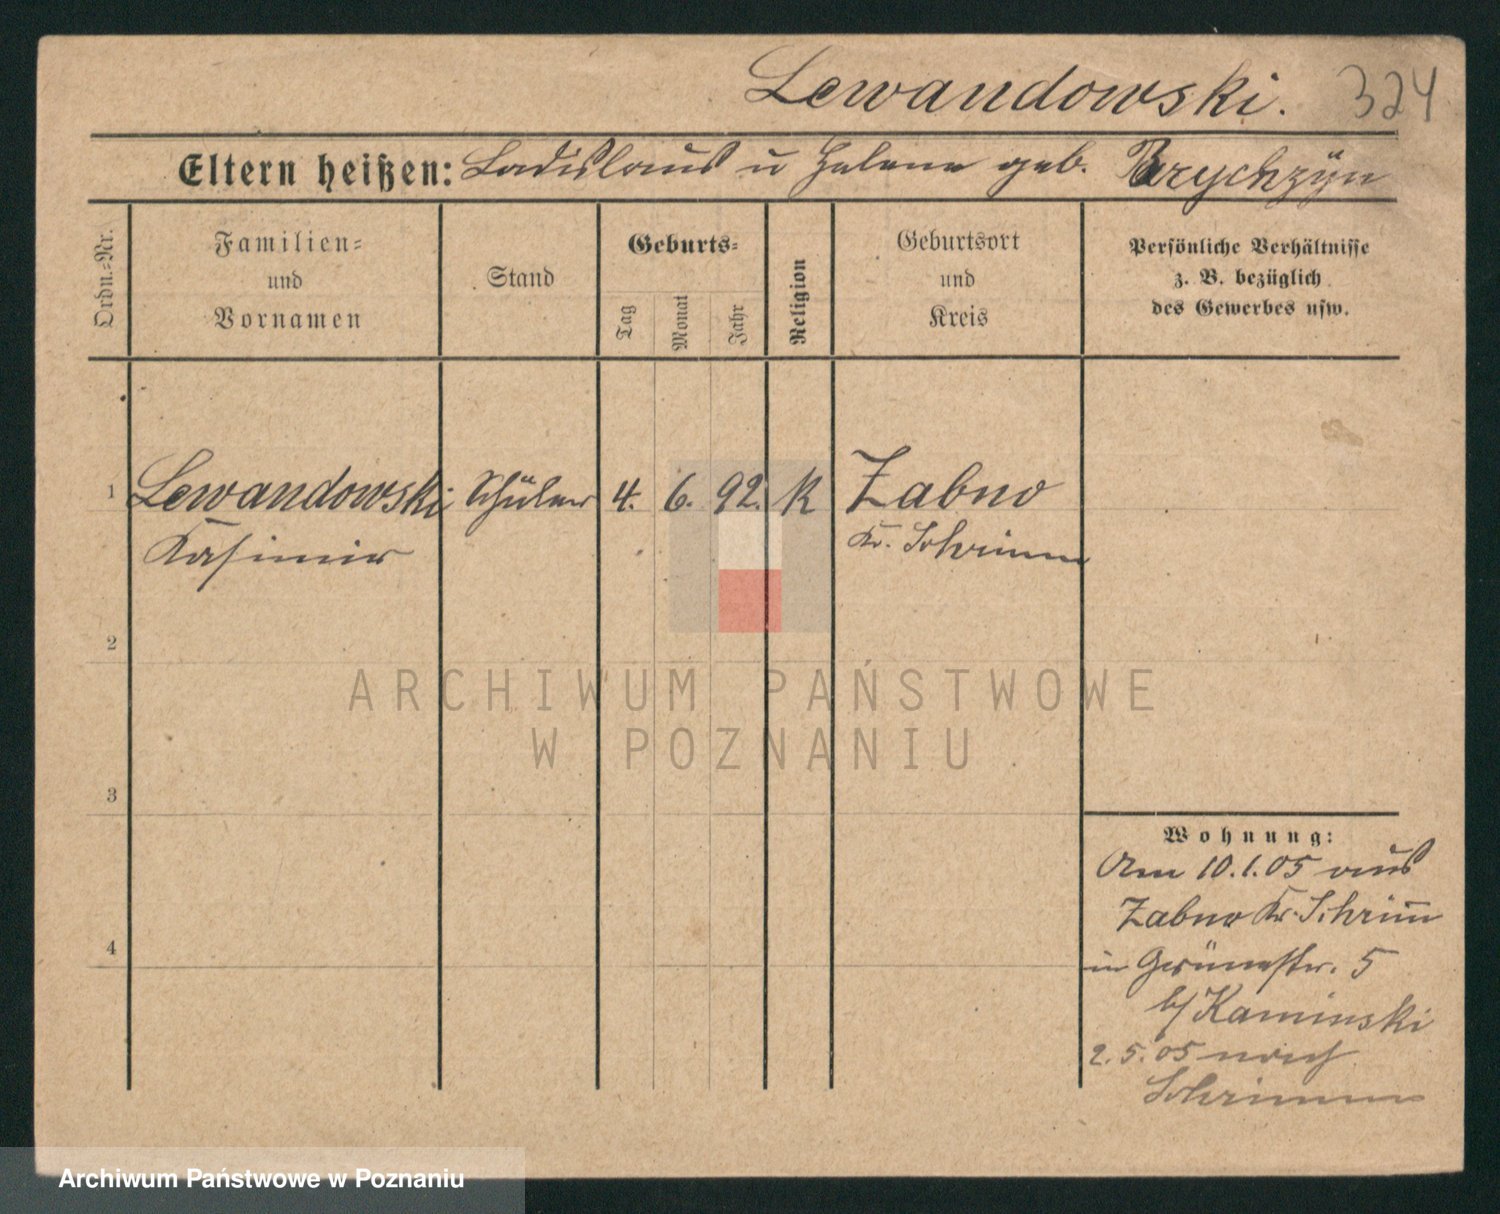 Lewandowski. 324
Eltern heißen: Ladislaus u Helene geb. Brychzÿn
Ordn.=Nr.
Familien=
und
Vornamen
Stand
Geburts=
Tag
Monat
Jahr
Religion
Geburtsort
und
Kreis
Persönliche Verhältnisse
z. B. bezüglich
des Gewerbes usw.
1 Lewandowski Schüler 4. 6. 92. K Zabno
Kasimir Kr. Schrimm
2
3
4
Wohnung:
Am 10.1.05 aus
Zabno Kr. Schrim̅
in 5
b/ Kaminski
2.5.05 nach
Schrimm
ARCHIWUM PAŃSTWOWE
W POZNANIU
Archiwum Państwowe w Poznaniu